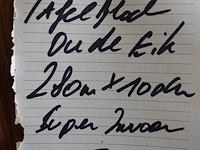 Tafelblad
Oude Eik
280m x 100cm
Super